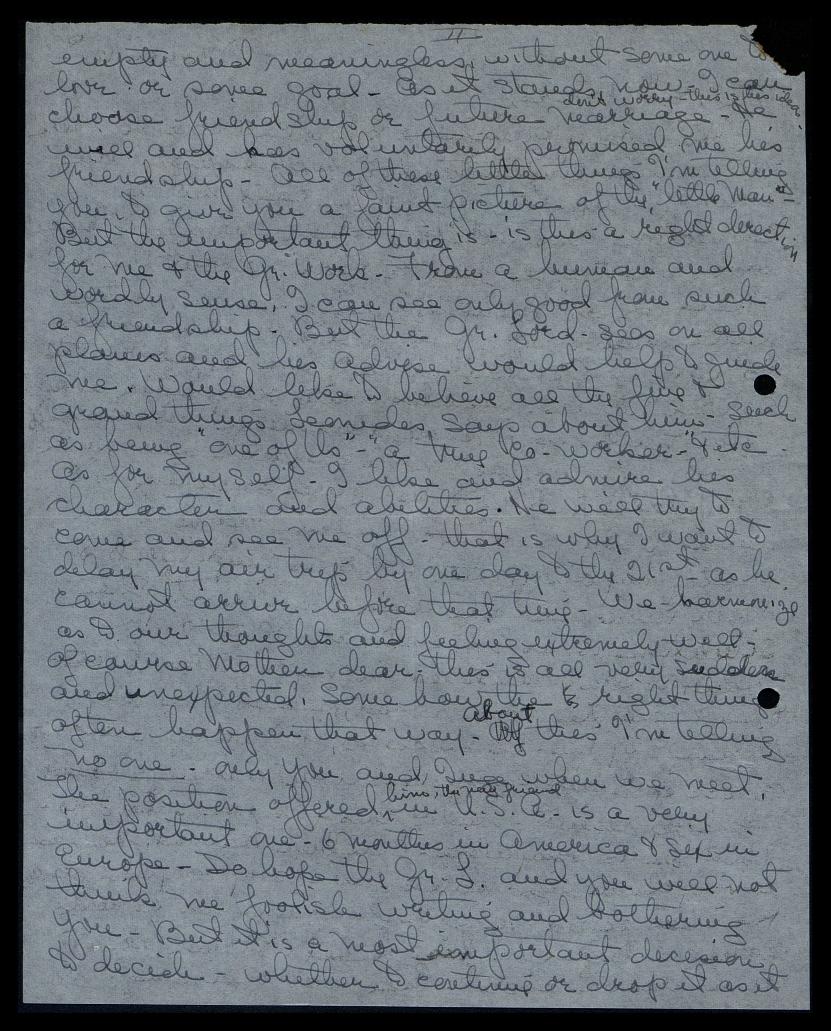 II
empty and meaningless, without some one to
love or some goal - As it stands, now - I can
don't worry - this is his idea
choose friendship or future marriage - He
will and has voluntarily promised me his
friendship - All of these little things I'm telling
you, to give you a faint picture of the "little man" -
But the important thing is - is this a right direction
for me & the Gr. Work - From a human and
wordly sense, I can see only good from such
a friendship - But the Gr. Lord - sees on all
planes and his advise would help to guide
me. Would like to believe all the fine &
grand things Leonides says about him - such
as being "one of Us" - "a true Co-Worker - " & etc -
As for myself - I like and admire his
character and abilities. He will try to
come and see me off - that is why I want to
delay my air trip by one day to the 21st - as he
cannot arrive before that time - We harmonize
as to our thoughts and feeling extremely well -
of course Mother dear - this is all very sudden
and unexpected. Some how, the right things
often happen that way - about this I'm telling
no one - only you and Inge when we meet.
him, the new friend
The position offered, in U.S.A. - is a very
important one - 6 months in America & six in
Europe - Do hope the Gr. L. and you will not
think me foolish writing and bothering
you - But it is a most important decision
to decide - whether to continue or drop it as it